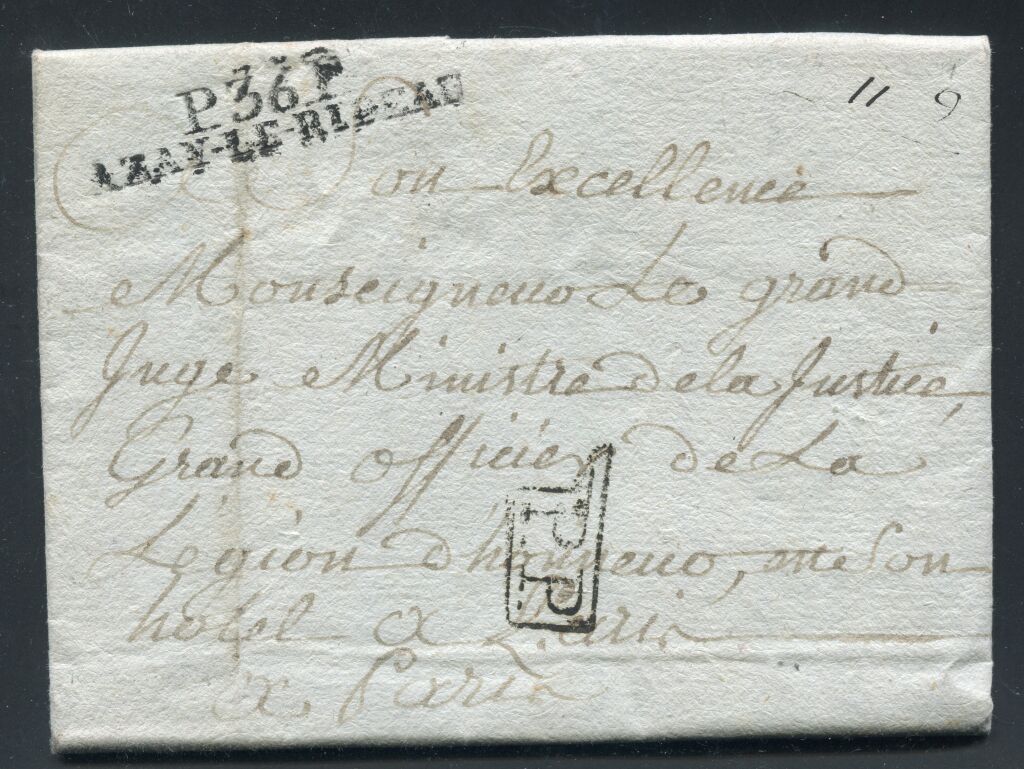 P.36.P
AZAY-LE-RIDEAU
11 9
Son Excellence
Monseigneur Le grand
Juge Ministre de la Justice,
Grand officier de La
Légion d'honneur, en Son
hotel a Paris
a Paris
P.P.